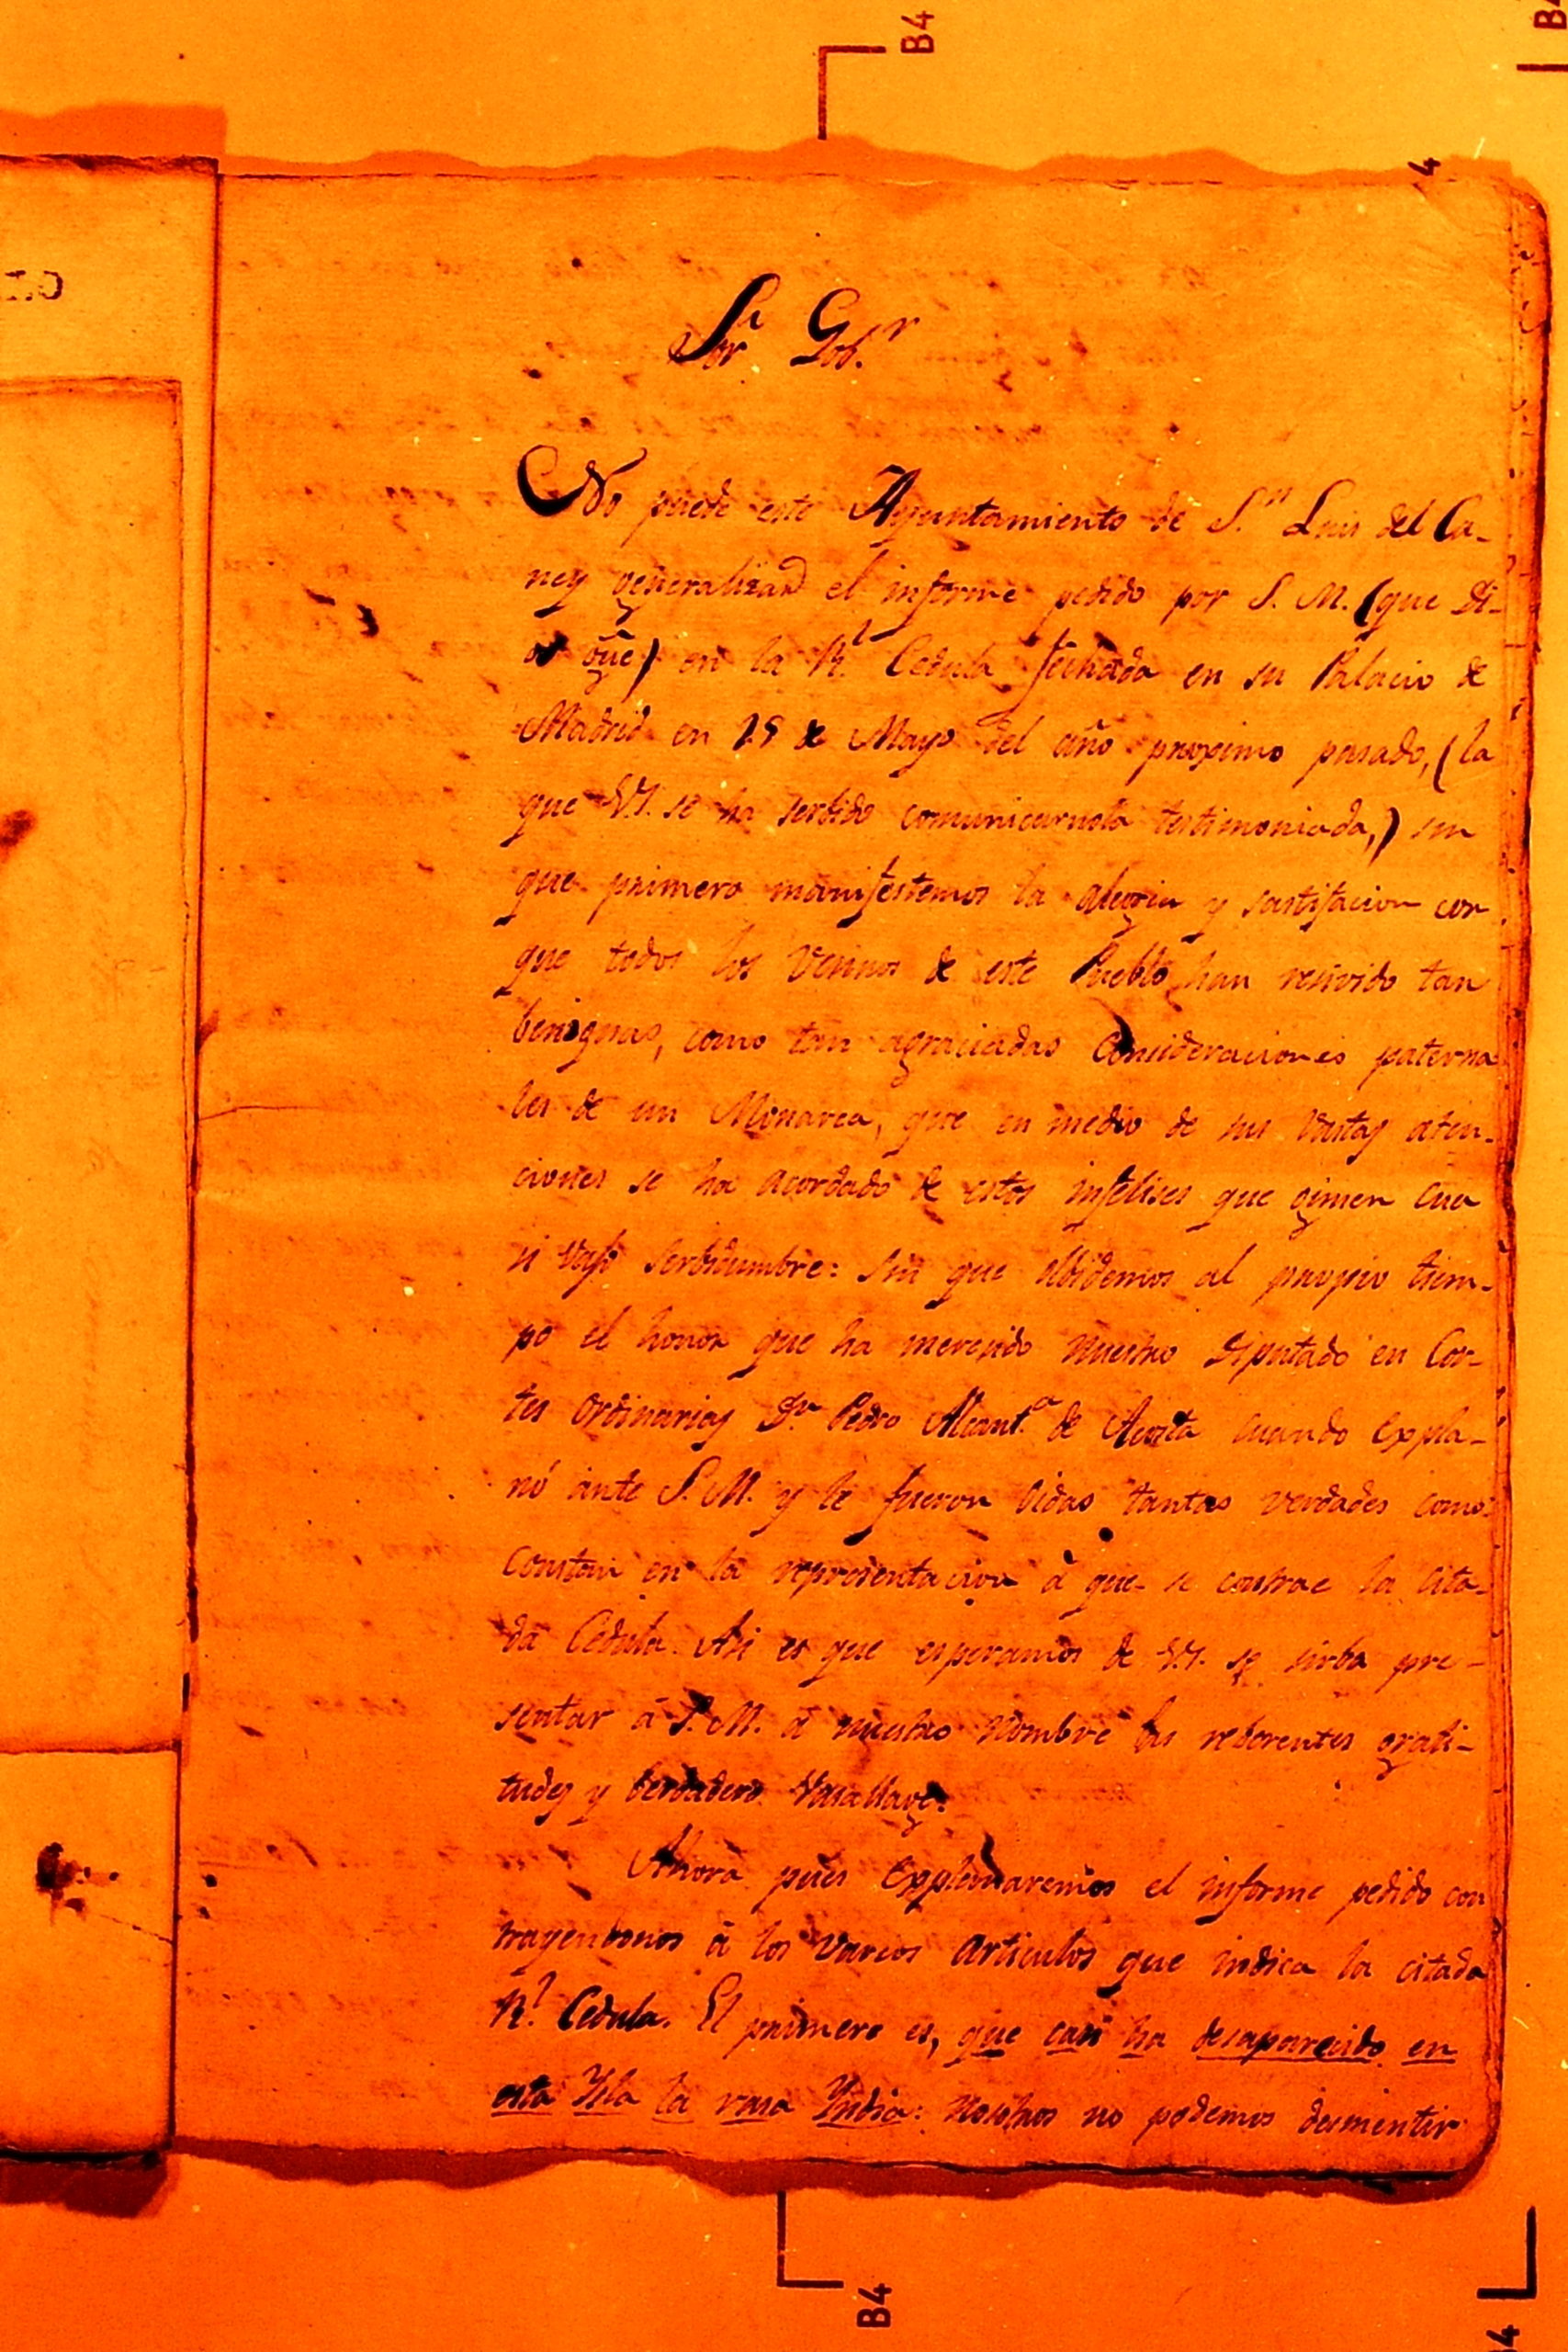 B4
4
Sor. Gobr.
No puede este Ayuntamiento de S.n Luis del Ca-
ney el informe pedido por S. M. (que Di-
os gũe) en la Rl. Cedula fechada en su Palacio de
Madrid en de Mayo del año proximo pasado, (la
que V.S. se ha serbido comunicarnosla testimoniada,) sin
que primero manifestemos la alegria y sastifacion con
que todos los Vecinos de este Pueblo han resivido tan
benignas, como tan agraciadas Consideraciones paterna
les de un Monarca, que en medio de sus Vastas aten-
ciones se ha acordado de estos infelises que gimen cua
si vajo serbidumbre: sin que olbidemos al propio tiem-
po el honor que ha meresido nuestro Diputado en Cor-
tes Ordinarias Dn. Pedro Alcant.a de Acosta cuando expla-
nó ante S. M. y le fueron oidas tantas verdades como
constan en la representacion à que se contrae la cita-
da Cedula. Asi es que esperamos de V.S. se sirba pre-
sentar á S. M. á nuestro nombre las reberentes grati-
tudes y berdadero Vasallage.
Ahora pues explanaremos el informe pedido con
trayendonos á los varios articulos que indica la citada
Rl. Cedula. El primero es, que casi ha desaparecido en
esta Ysla la rasa Yndia: nosotros no podemos desmentir
B4